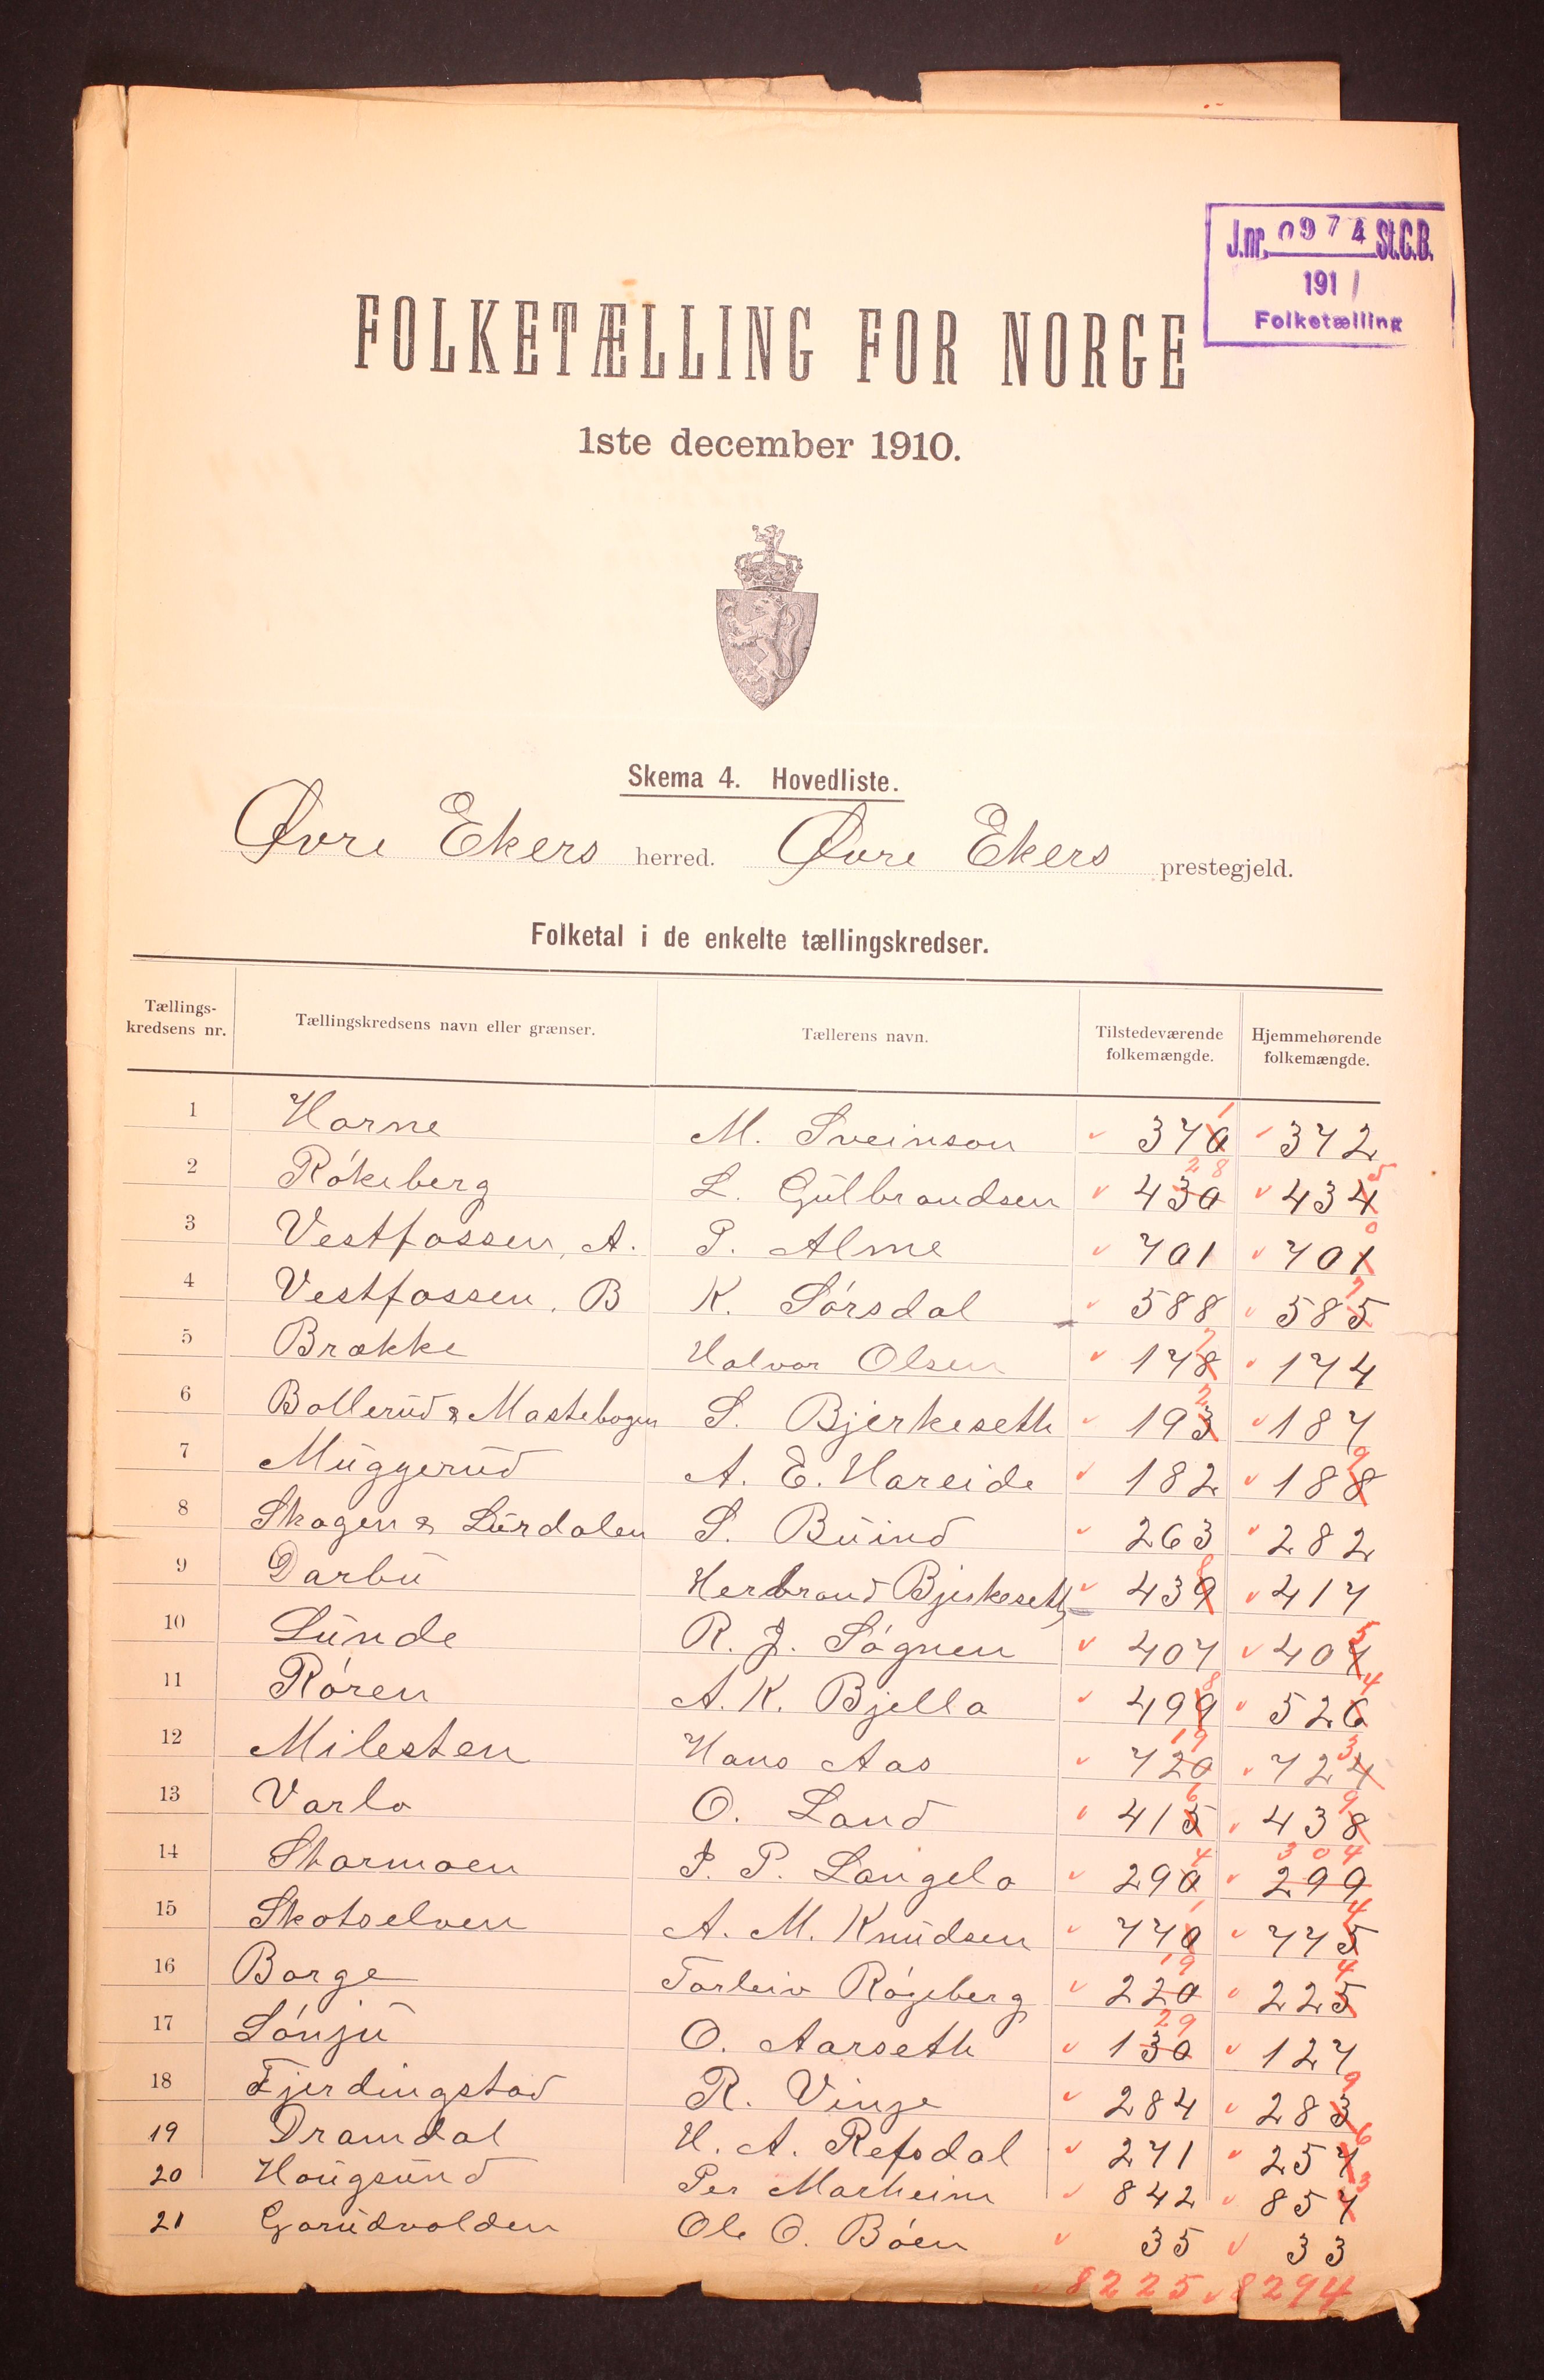 J.nr. 0974 St.C.B.
1911
Folketælling
FOLKETÆLLING FOR NORGE
1ste december 1910.
Skema 4. Hovedliste.
Øvre Ekers herred. Øvre Ekers prestegjeld.
Folketal i de enkelte tællingskredser.
Tællings-kredsens nr. Tællingskredsens navn eller grænser. Tællerens navn. Tilstedeværende folkemængde. Hjemmehørende folkemængde.
1 Horne M. Sveinson 370 1 372
2 Røkeberg L. Gulbrandsen 430 28 434 5
3 Vestfossen, A. P. Alme 701 701 0
4 Vestfossen, B K. Sørsdal 588 585 7
5 Brække Halvor Olsen 178 7 174
6 Bollerud & Mastebogen S. Bjerkeseth 193 2 187
7 Muggerud A. E. Hareide 182 188 9
8 Skogen & Lurdalen S. Buind 263 282
9 Darbu Herbrand Bjerkeseth 439 8 417
10 Lunde R. J. Søgnen 407 407 5
11 Røren A. K. Bjella 499 8 526 4
12 Milesten Hans Aas 720 19 724 3
13 Varlo O. Land 415 6 438 9
14 Stormoen P. P. Langelo 290 4 299 304
15 Skotselven A. M. Knudsen 770 1 775 4
16 Borge Torleiv Røgeberg 220 19 225 4
17 Lønju O. Aarseth 130 29 127
18 Fjerdingstad R. Vinje 284 283 9
19 Dramdal H. A. Refsdal 271 257 6
20 Hougsund Per Marheim 842 857 3
21 Gorudvolden Ole O. Bøen 35 33
8225 8294